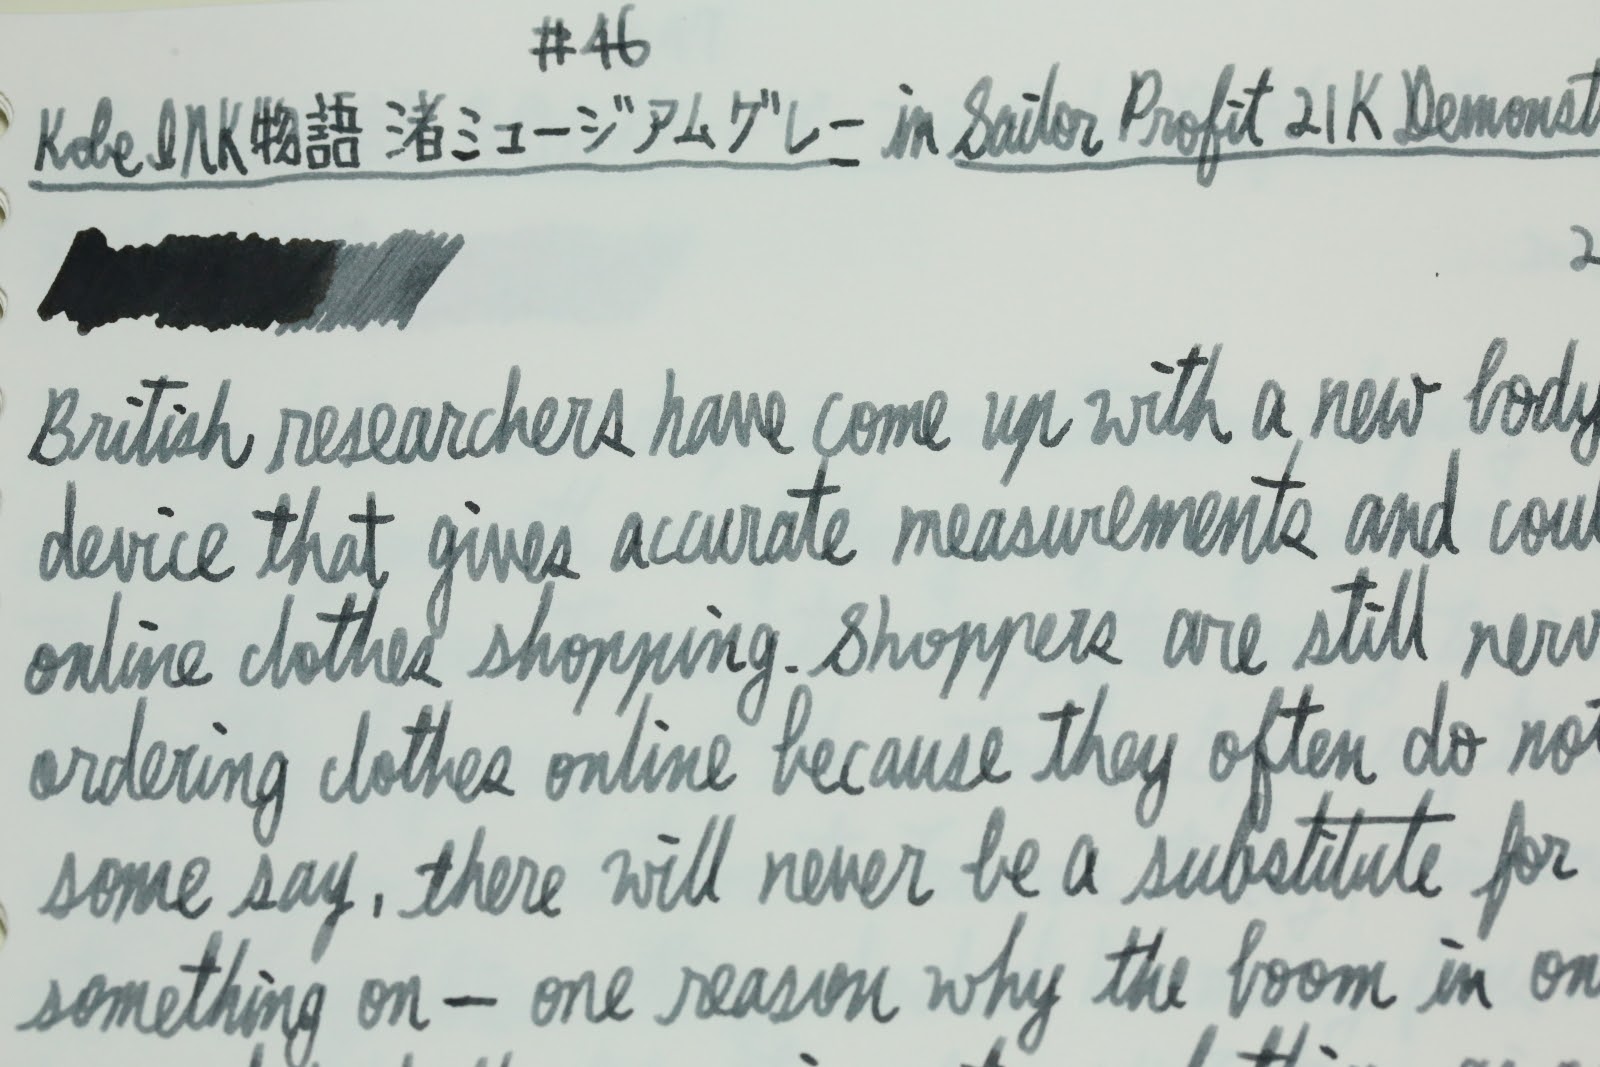 #46
Kobe INK物語 渚ミュージアムグレー in Sailor Profit 21K Demonst
2
British researchers have come up with a new body
device that gives accurate measurements and coul
online clothes shopping. Shoppers are still nerv
ordering clothes online because they often do not
some say, there will never be a substitute for
something on — one reason why the boom in on